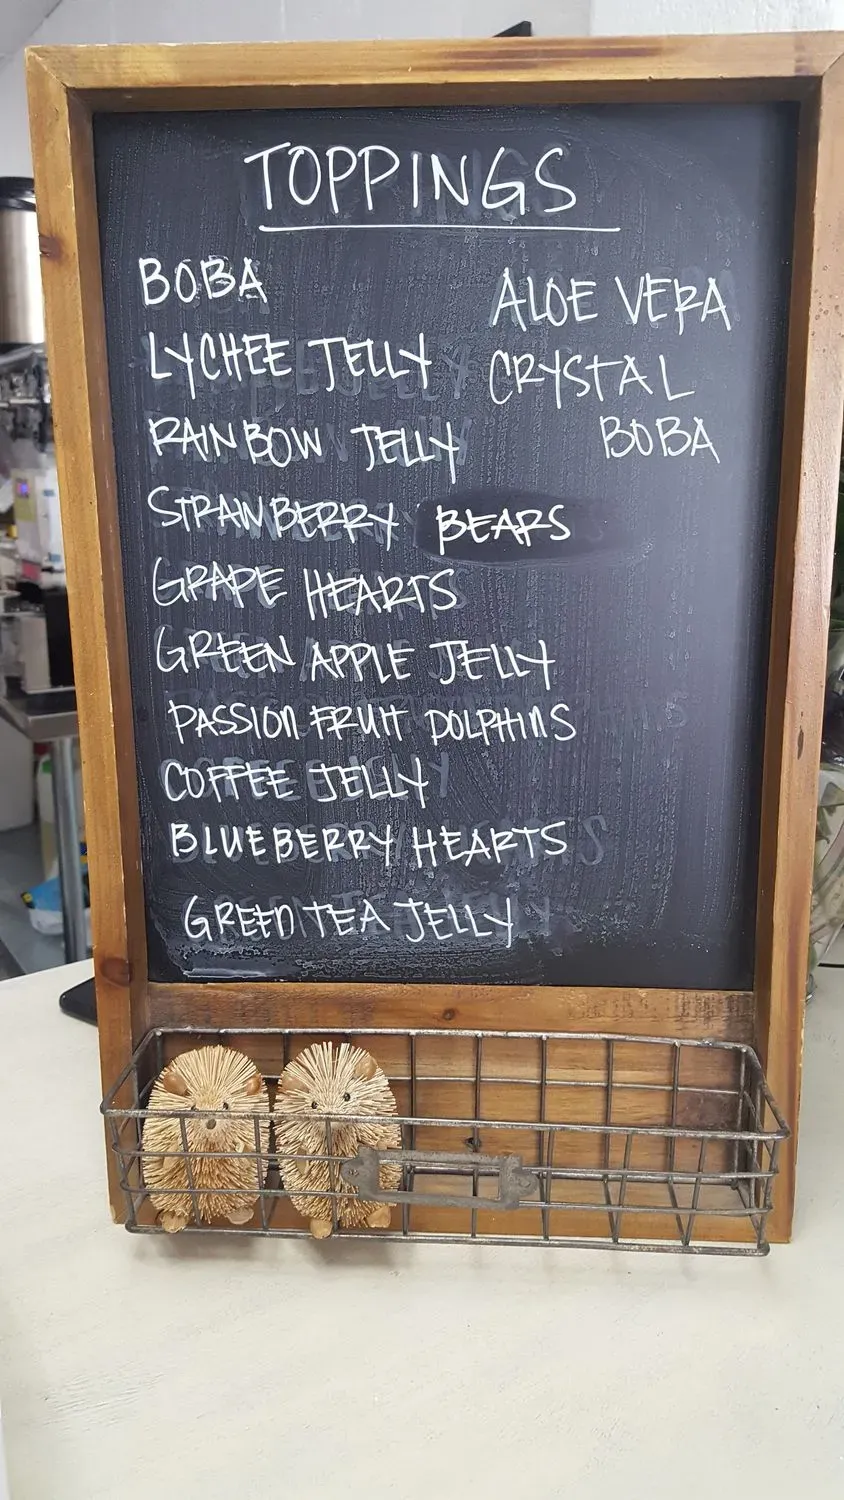 TOPPINGS
BOBA
LYCHEE JELLY
RAINBOW JELLY
STRAWBERRY BEARS
GRAPE HEARTS
GREEN APPLE JELLY
PASSION FRUIT DOLPHINS
COFFEE JELLY
BLUEBERRY HEARTS
GREEN TEA JELLY
ALOE VERA
CRYSTAL
BOBA